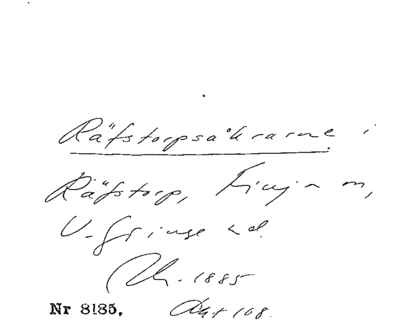 Räfstorpsåkrarne i
Räfstorp, Finja sn,
V. Göinge hd.
1885
Nr 8185. Akt 108.